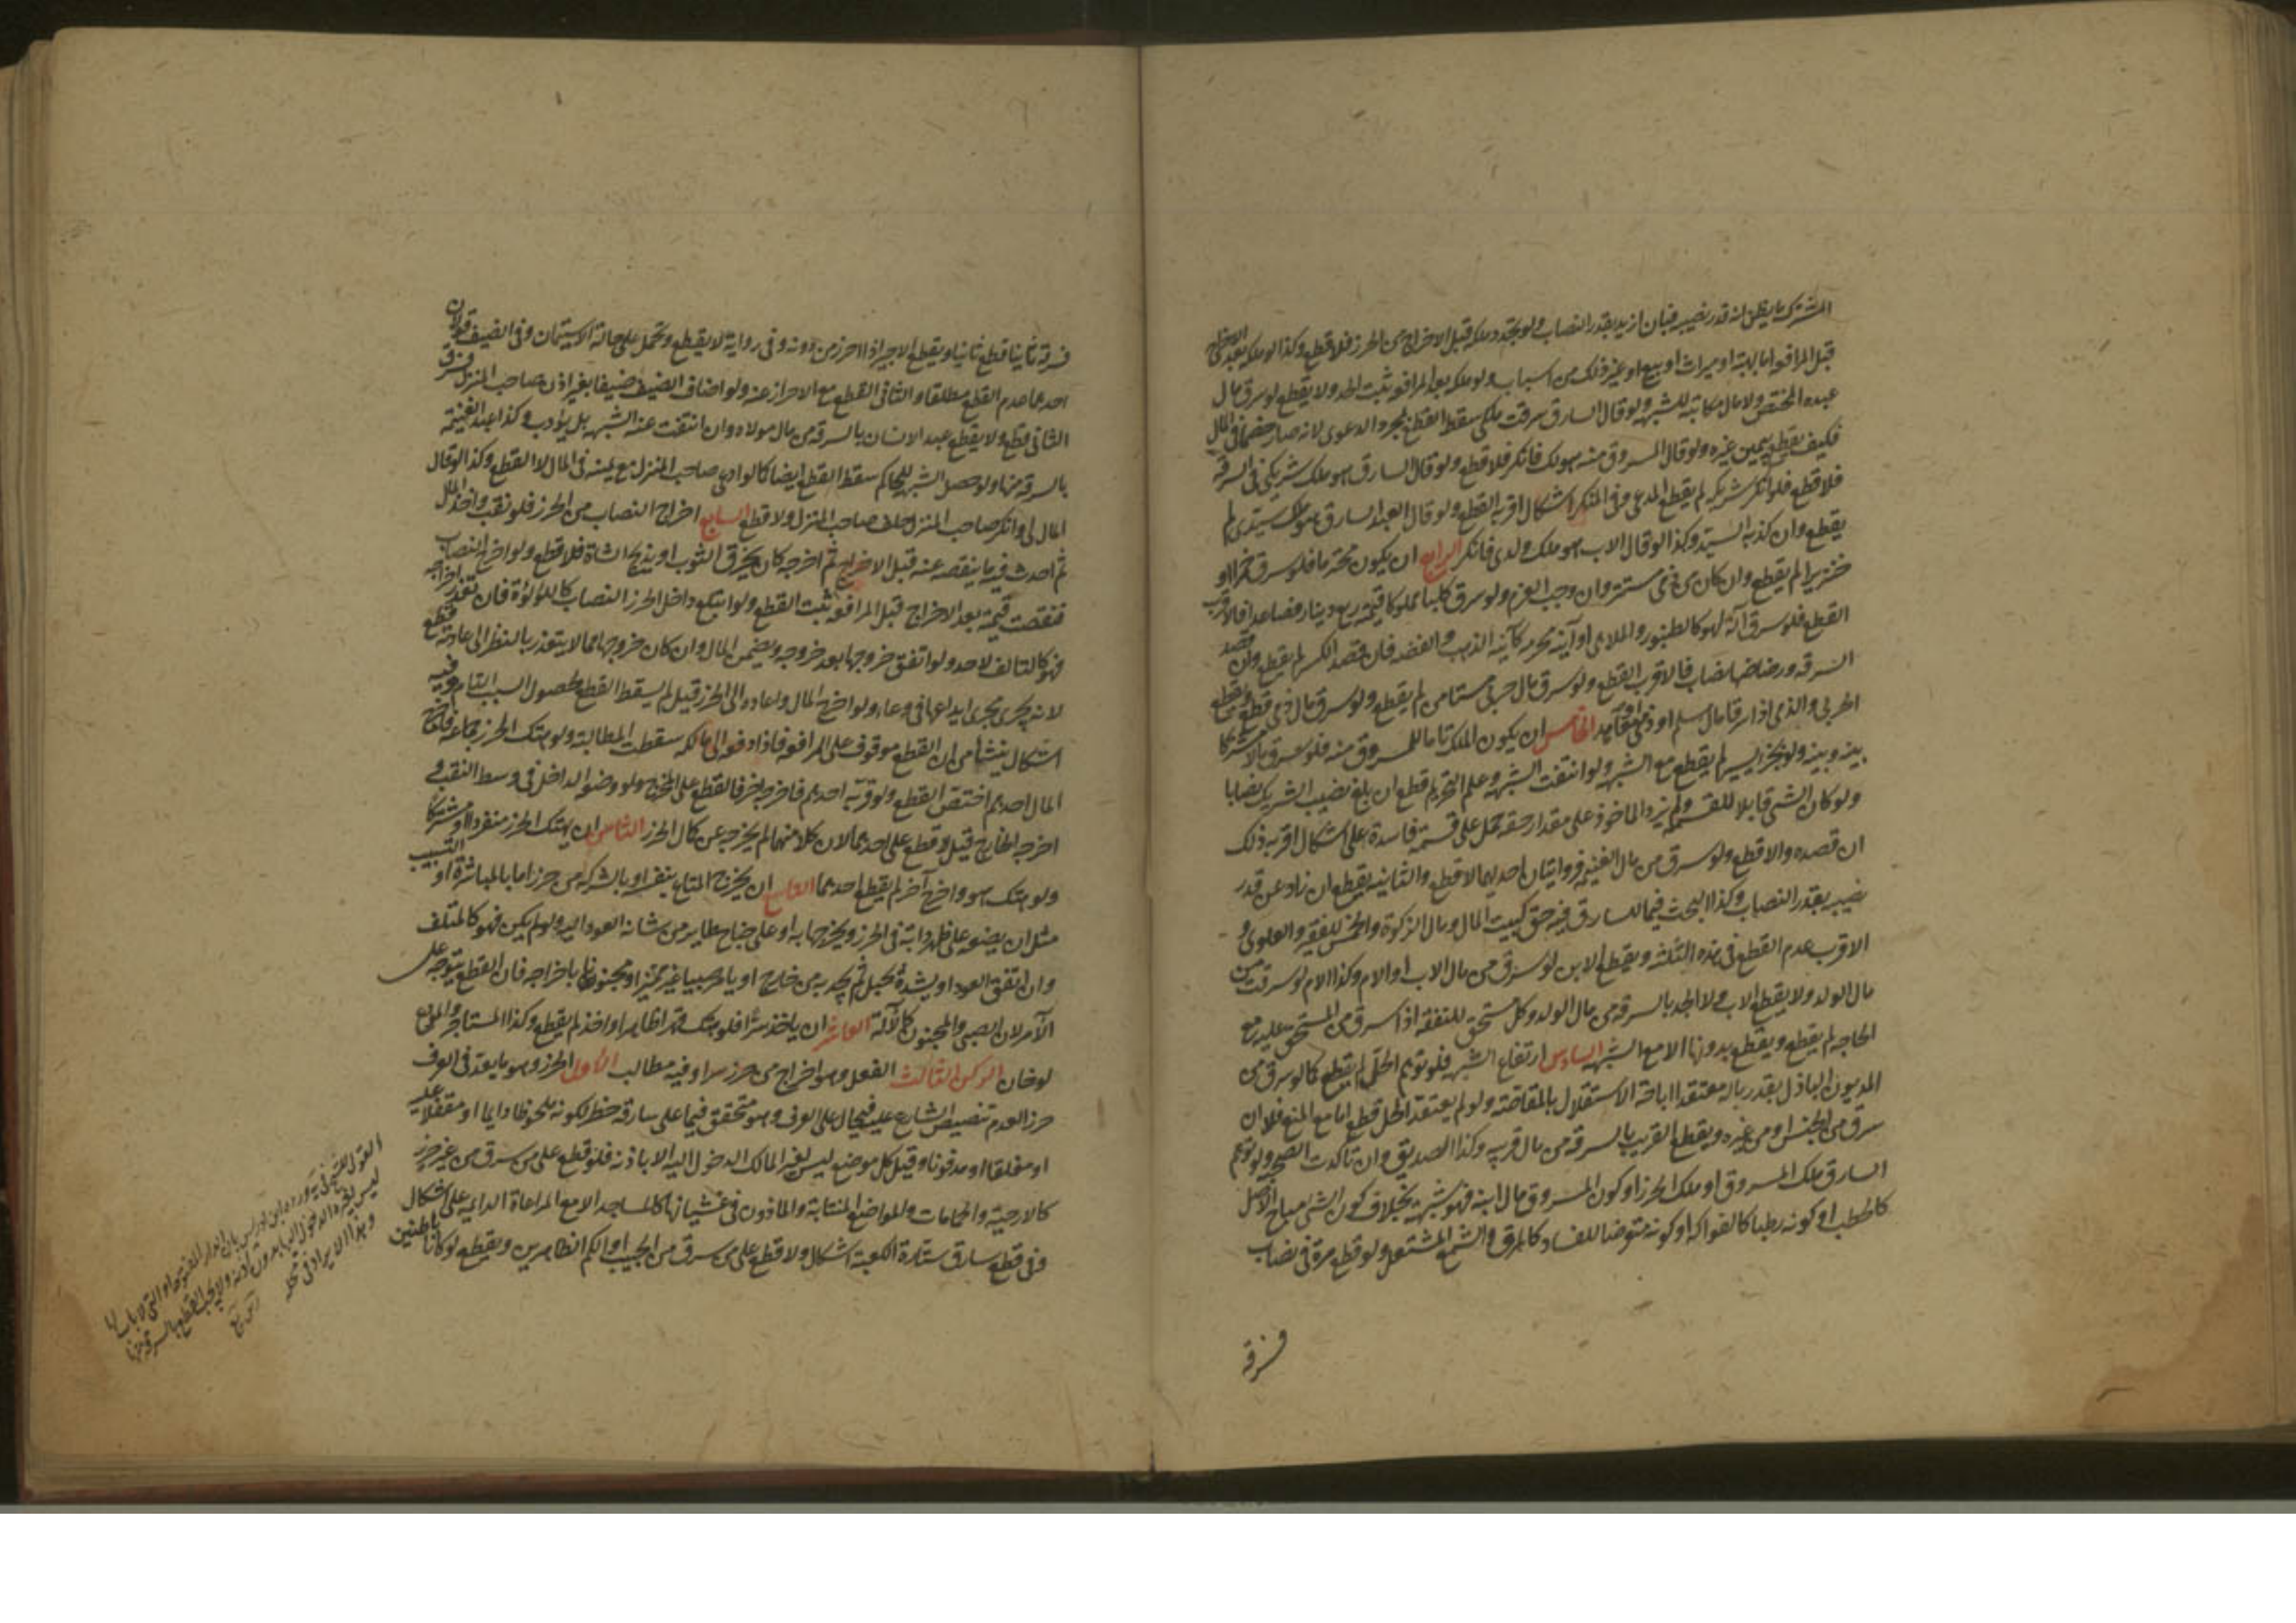 المشترك ما يظن انه قدر نصيبه فبان ازيد بقدر النصاب ولو تجدد ملكه قبل الاخراج من الحرز فلا قطع وكذا لو ملكه بعد الاخراج
قبل المرافعة اما بهبة او ميراث او بيع او غير ذلك من اسباب ولو ملكه بعد المرافعة ثبت الحد ولا يقطع لو سرق مال
عبده المختص ولا مال مكاتبه للشبهة ولو قال السارق سرقت ملكي سقط القطع بمجرد الدعوى لانه صار خصما في المال
فكيف يقطع بيمين غيره ولو قال المسروق منه هو لك فانكر فلا قطع ولو قال السارق هو ملك شريكي في السرقة
فلا قطع فلو انكر شريكه لم يقطع المدعي وفي المنكر اشكال اقربه القطع ولو قال العبد السارق هو ملك سيدي لم
يقطع وان كذبه السيد وكذا لو قال الاب هو ملك ولدي فانكر الرابع ان يكون محترما فلو سرق خمرا او
خنزيرا لم يقطع وان كان من ذمي مستتر وان وجب الغرم ولو سرق كلبا مملوكا قيمته ربع دينار فصاعدا فالاقرب
القطع فلو سرق آلة لهو كالطنبور والملاهي او آنية محرمة كآنية الذهب والفضة فان قصد الكسر لم يقطع وان قصد
السرقة ورضاضها نصاب فالاقرب القطع ولو سرق مال حربي مستامن لم يقطع ولو سرق مال ذمي قطع ويقطع
الحربي والذمي اذا سرقا مال مسلم او ذمي او معاهد الخامس ان يكون الملك تاما للمسروق منه فلو سرق مالا مشتركا
بينه وبينه ولو بجزء يسير لم يقطع مع الشبهة ولو انتفت الشبهة وعلم التحريم قطع ان بلغ نصيب الشريك نصابا
ولو كان الشئ قابلا للقسمة ولم يزد الماخوذ على مقدار حقه حمل على قسمة فاسدة على اشكال اقربه ذلك
ان قصده والا قطع ولو سرق من مال الغنيمة فروايتان احديهما لا قطع والثانية يقطع ان زاد عن قدر
نصيبه بقدر النصاب وكذا البحث فيما للسارق فيه حق كبيت المال ومال الزكوة والخمس للفقير والعلوي و
الاقرب عدم القطع في هذه الثلثة ويقطع الابن لو سرق من مال الاب او الام وكذا الام لو سرقت من
مال الولد ولا يقطع الاب ولا الجد بالسرقة من مال الولد وكل مستحق للنفقة اذا سرق من المستحق عليه مع
الحاجة لم يقطع ويقطع بدونها الا مع الشبهة السادس ارتفاع الشبهة فلو توهم الحل لم يقطع كما لو سرق من
المديون الباذل بقدر ماله معتقدا اباحة الاستقلال بالمقاصة ولو لم يعتقد الحل قطع اما مع المنع فلا ان
سرق من الجنس او من غيره ويقطع القريب بالسرقة من مال قريبه وكذا الصديق وان تاكدت الصحبة ولو توهم
السارق ملك المسروق او ملك الحرز او كون المسروق مال ابنه فهو شبهة بخلاف كون الشئ مباح الاصل
كالحطب او كونه رطبا كالفواكه او كونه متعرضا للفساد كالمرق والشمع المشتعل ولو قطع مرة في نصاب
فسرقه
فسرقه ثانيا قطع ثانيا ويقطع الاجير اذا احرز من دونه وفي رواية لا يقطع وتحمل على حالة الاستيمان وفي الضيف قولان
احدهما عدم القطع مطلقا والثاني القطع مع الاحراز عنه ولو اضاف الضيف ضيفا بغير اذن صاحب المنزل فسرق
الثاني قطع ولا يقطع عبد الانسان بالسرقة من مال مولاه وان انتفت عنه الشبهة بل يؤدب وكذا عبد الغنيمة
بالسرقة منها ولو حصل الشبهة للحاكم سقط القطع ايضا كما لو ادعى صاحب المنزل مع يمينه في المال لا القطع وكذا لو قال
المال لي وانكر صاحب المنزل حلف صاحب المنزل ولا قطع السابع اخراج النصاب من الحرز فلو نقب واخذ المال
ثم احدث فيه ما ينقصه عنه قبل الاخراج ثم اخرجه كان يخرق الثوب او يذبح الشاة فلا قطع ولو اخرج النصاب
فنقصت قيمته بعد الاخراج قبل المرافعة ثبت القطع ولو ابتلع داخل الحرز النصاب كاللؤلؤة فان تعذر اخراجه
فهو كالتالف لا حد ولو اتفق خروجها بعد خروجه ويضمن المال وان كان خروجها مما لا يتعذر بالنظر الى عادته قطع
لانه يجري مجرى ايداعها في وعاء ولو اخرج المال واعاده الى الحرز قيل لم يسقط القطع لحصول السبب التام وفيه
اشكال ينشأ من ان القطع موقوف على المرافعة فاذا دفعه الى مالكه سقطت المطالبة ولو هتك الحرز جماعة فاخرج
المال احدهم اختص القطع ولو قربه احدهم فاخرجه آخر فالقطع على المخرج ولو وضعه الداخل في وسط النقب و
اخرجه الخارج قيل لا قطع على احدهما لان كلا منهما لم يخرجه عن كمال الحرز الثامن ان يهتك الحرز منفردا او مشتركا
ولو هتك هو واخرج آخر لم يقطع احدهما التاسع ان يخرج المتاع بنفسه او بالشركة من حرز اما بالمباشرة او التسبيب
مثل ان يضعه على ظهر دابة في الحرز ويخرجها به او على جناح طاير من شانه العود اليه ولو لم يكن فهو كالمتلف
وان اتفق العود او يشده بحبل ثم يجذبه من خارج او يامر صبيا غير مميز او مجنونا باخراجه فان القطع يتوجه على
الآمر لان الصبي والمجنون كالآلة العاشر ان ياخذ سرا فلو هتك قهرا ظاهرا واخذ لم يقطع وكذا المستاجر والمودع
لو خان الركن الثالث الفعل وهو اخراج من حرز سرا وفيه مطالب الاول الحرز وهو ما يعد في العرف
حرزا لعدم تنصيص الشارع عليه فيحال على العرف وهو متحقق فيما على سارقه خطر لكونه ملحوظا دايما او مقفلا عليه
او مغلقا او مدفونا وقيل كل موضع ليس لغير المالك الدخول اليه الا باذنه فلا قطع على من سرق من غير حرز
كالارحية والحمامات والمواضع المنتابة والماذون في غشيانها كالمساجد الا مع المراعاة الدايمة على اشكال
وفي قطع سارق ستارة الكعبة اشكال ولا قطع على من سرق من الجيب او الكم الظاهرين ويقطع لو كانا باطنين